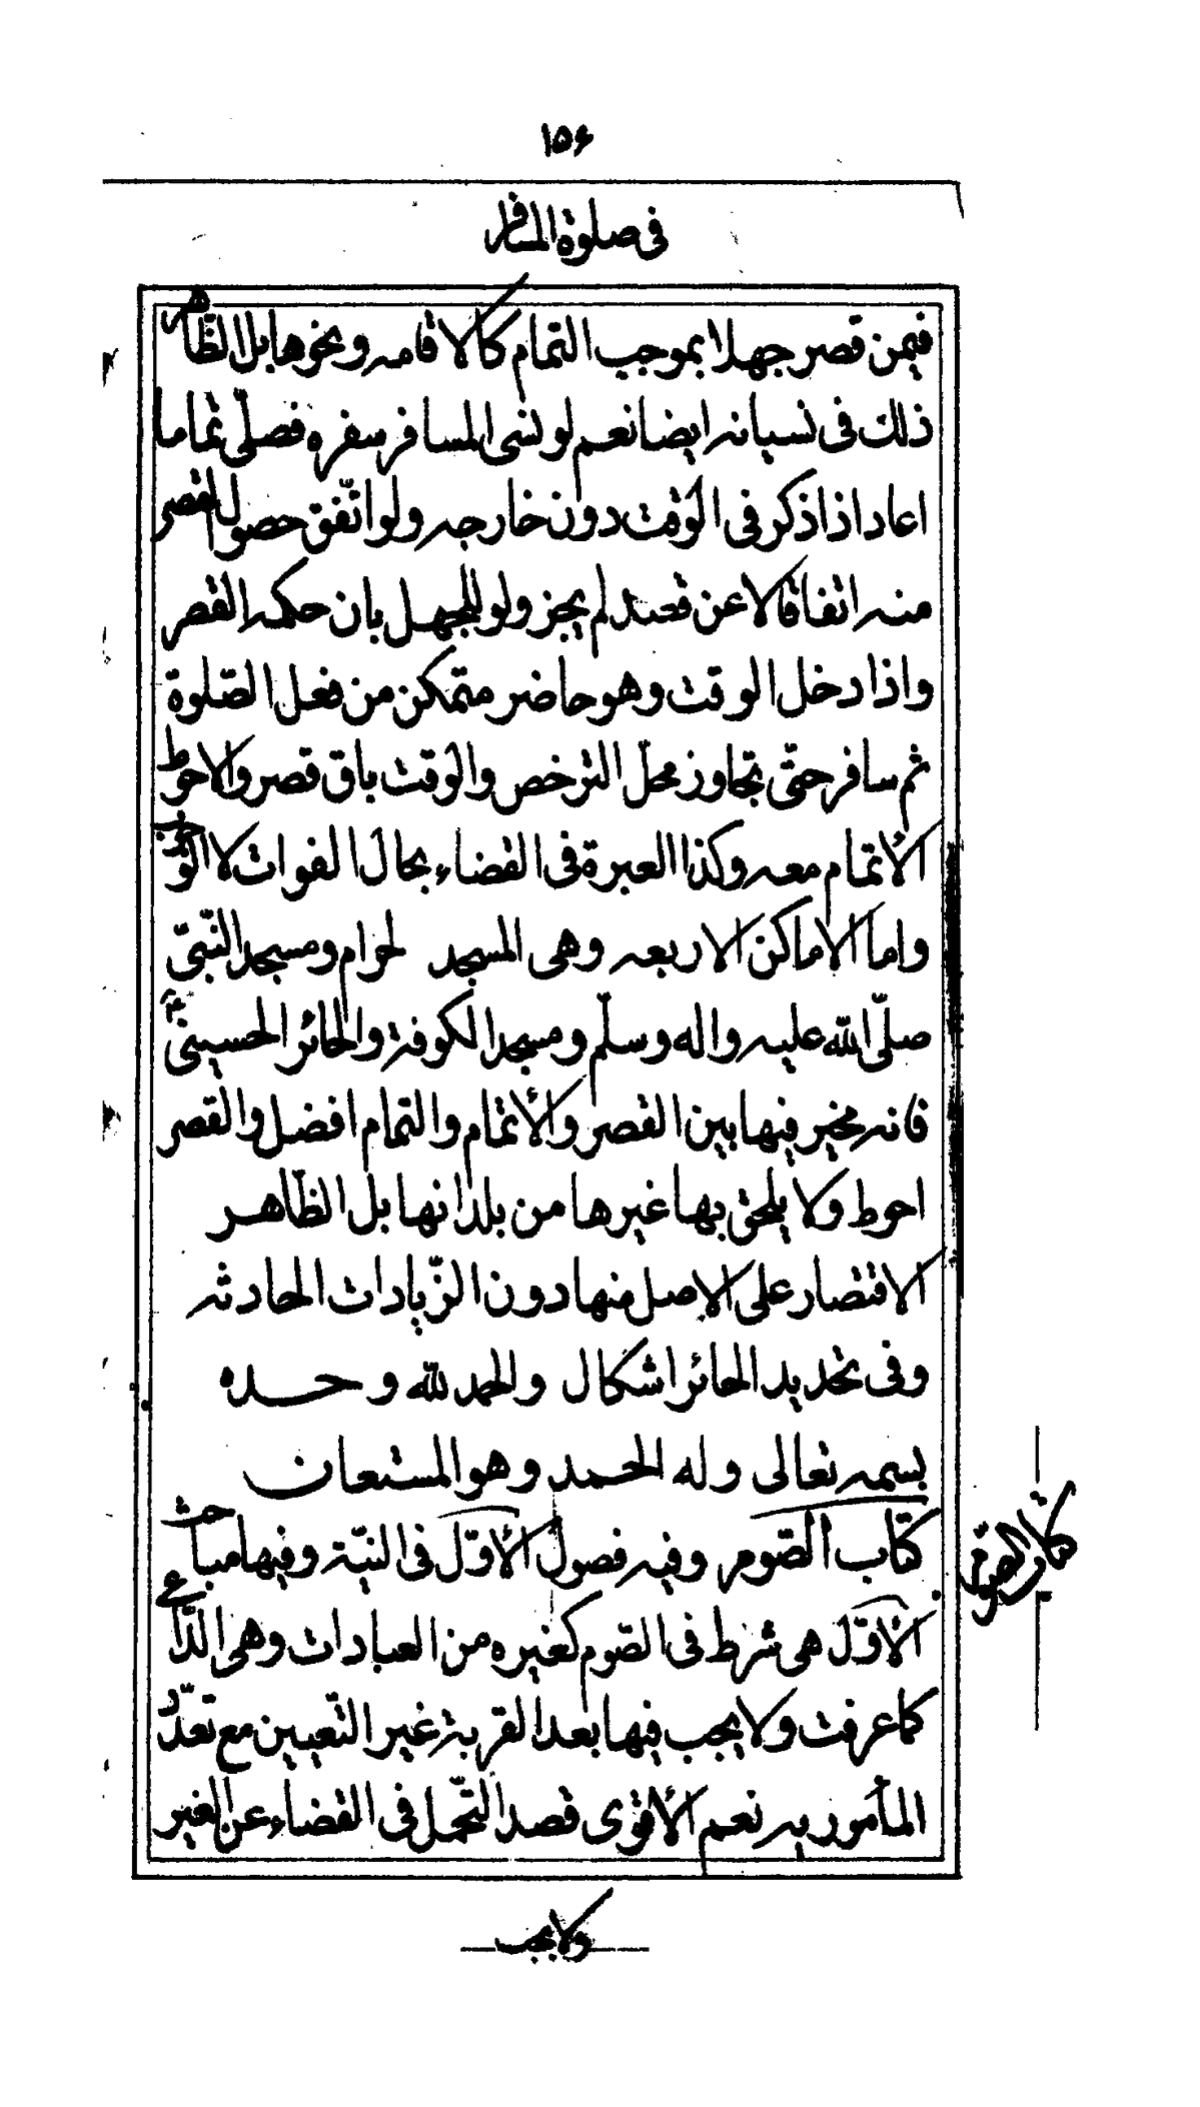 ۱۵۶
فی صلوة المسافر
فیمن قصر جهلا بموجب التمام کالاقامه و نحوها بل الظّاهر
ذلك فی نسیانه ایضا نعم لو نسی المسافر سفره فصلّی تماما
اعاد اذا ذکر فی الوقت دون خارجه ولو اتّفق حصول القصر
منه اتفاقا لا عن قصد لم یجز ولو للجهل بان حکمه القصر
واذا دخل الوقت وهو حاضر متمکن من فعل الصّلوة
ثم سافر حتّی تجاوز محلّ الترخص والوقت باق قصر والاحوط
الأتمام معه وکذا العبرة فی القضاء بحال الفوات لا الوجوب
واما الاماکن الاربعه وهی المسجد لحرام ومسجد النّبیّ
صلّی اللّه علیه واله وسلّم ومسجد الکوفة والحائر الحسینیّ
فانه مخیر فیها بین القصر والأتمام والتمام افضل والقصر
احوط ولا یلحق بها غیرها من بلدانها بل الظّاهر
الاقتصار علی الاصل منها دون الزّیادات الحادثه
وفی تحدید الحائر اشکال والحمد للّه وحده
بسمه تعالی وله الحمد وهو المستعان
کتاب الصّوم وفیه فصول الأوّل فی النیّة وفیها مباحث
الأوّل هی شرط فی الصّوم کغیره من العبادات وهی الدّاعی
کما عرفت ولا یجب فیها بعد القربة غیر التّعیین مع تعدّد
المأمور به نعم الأقوی قصد التّحمل فی القضاء عن الغیر
کتاب الصوم
ولا یجب